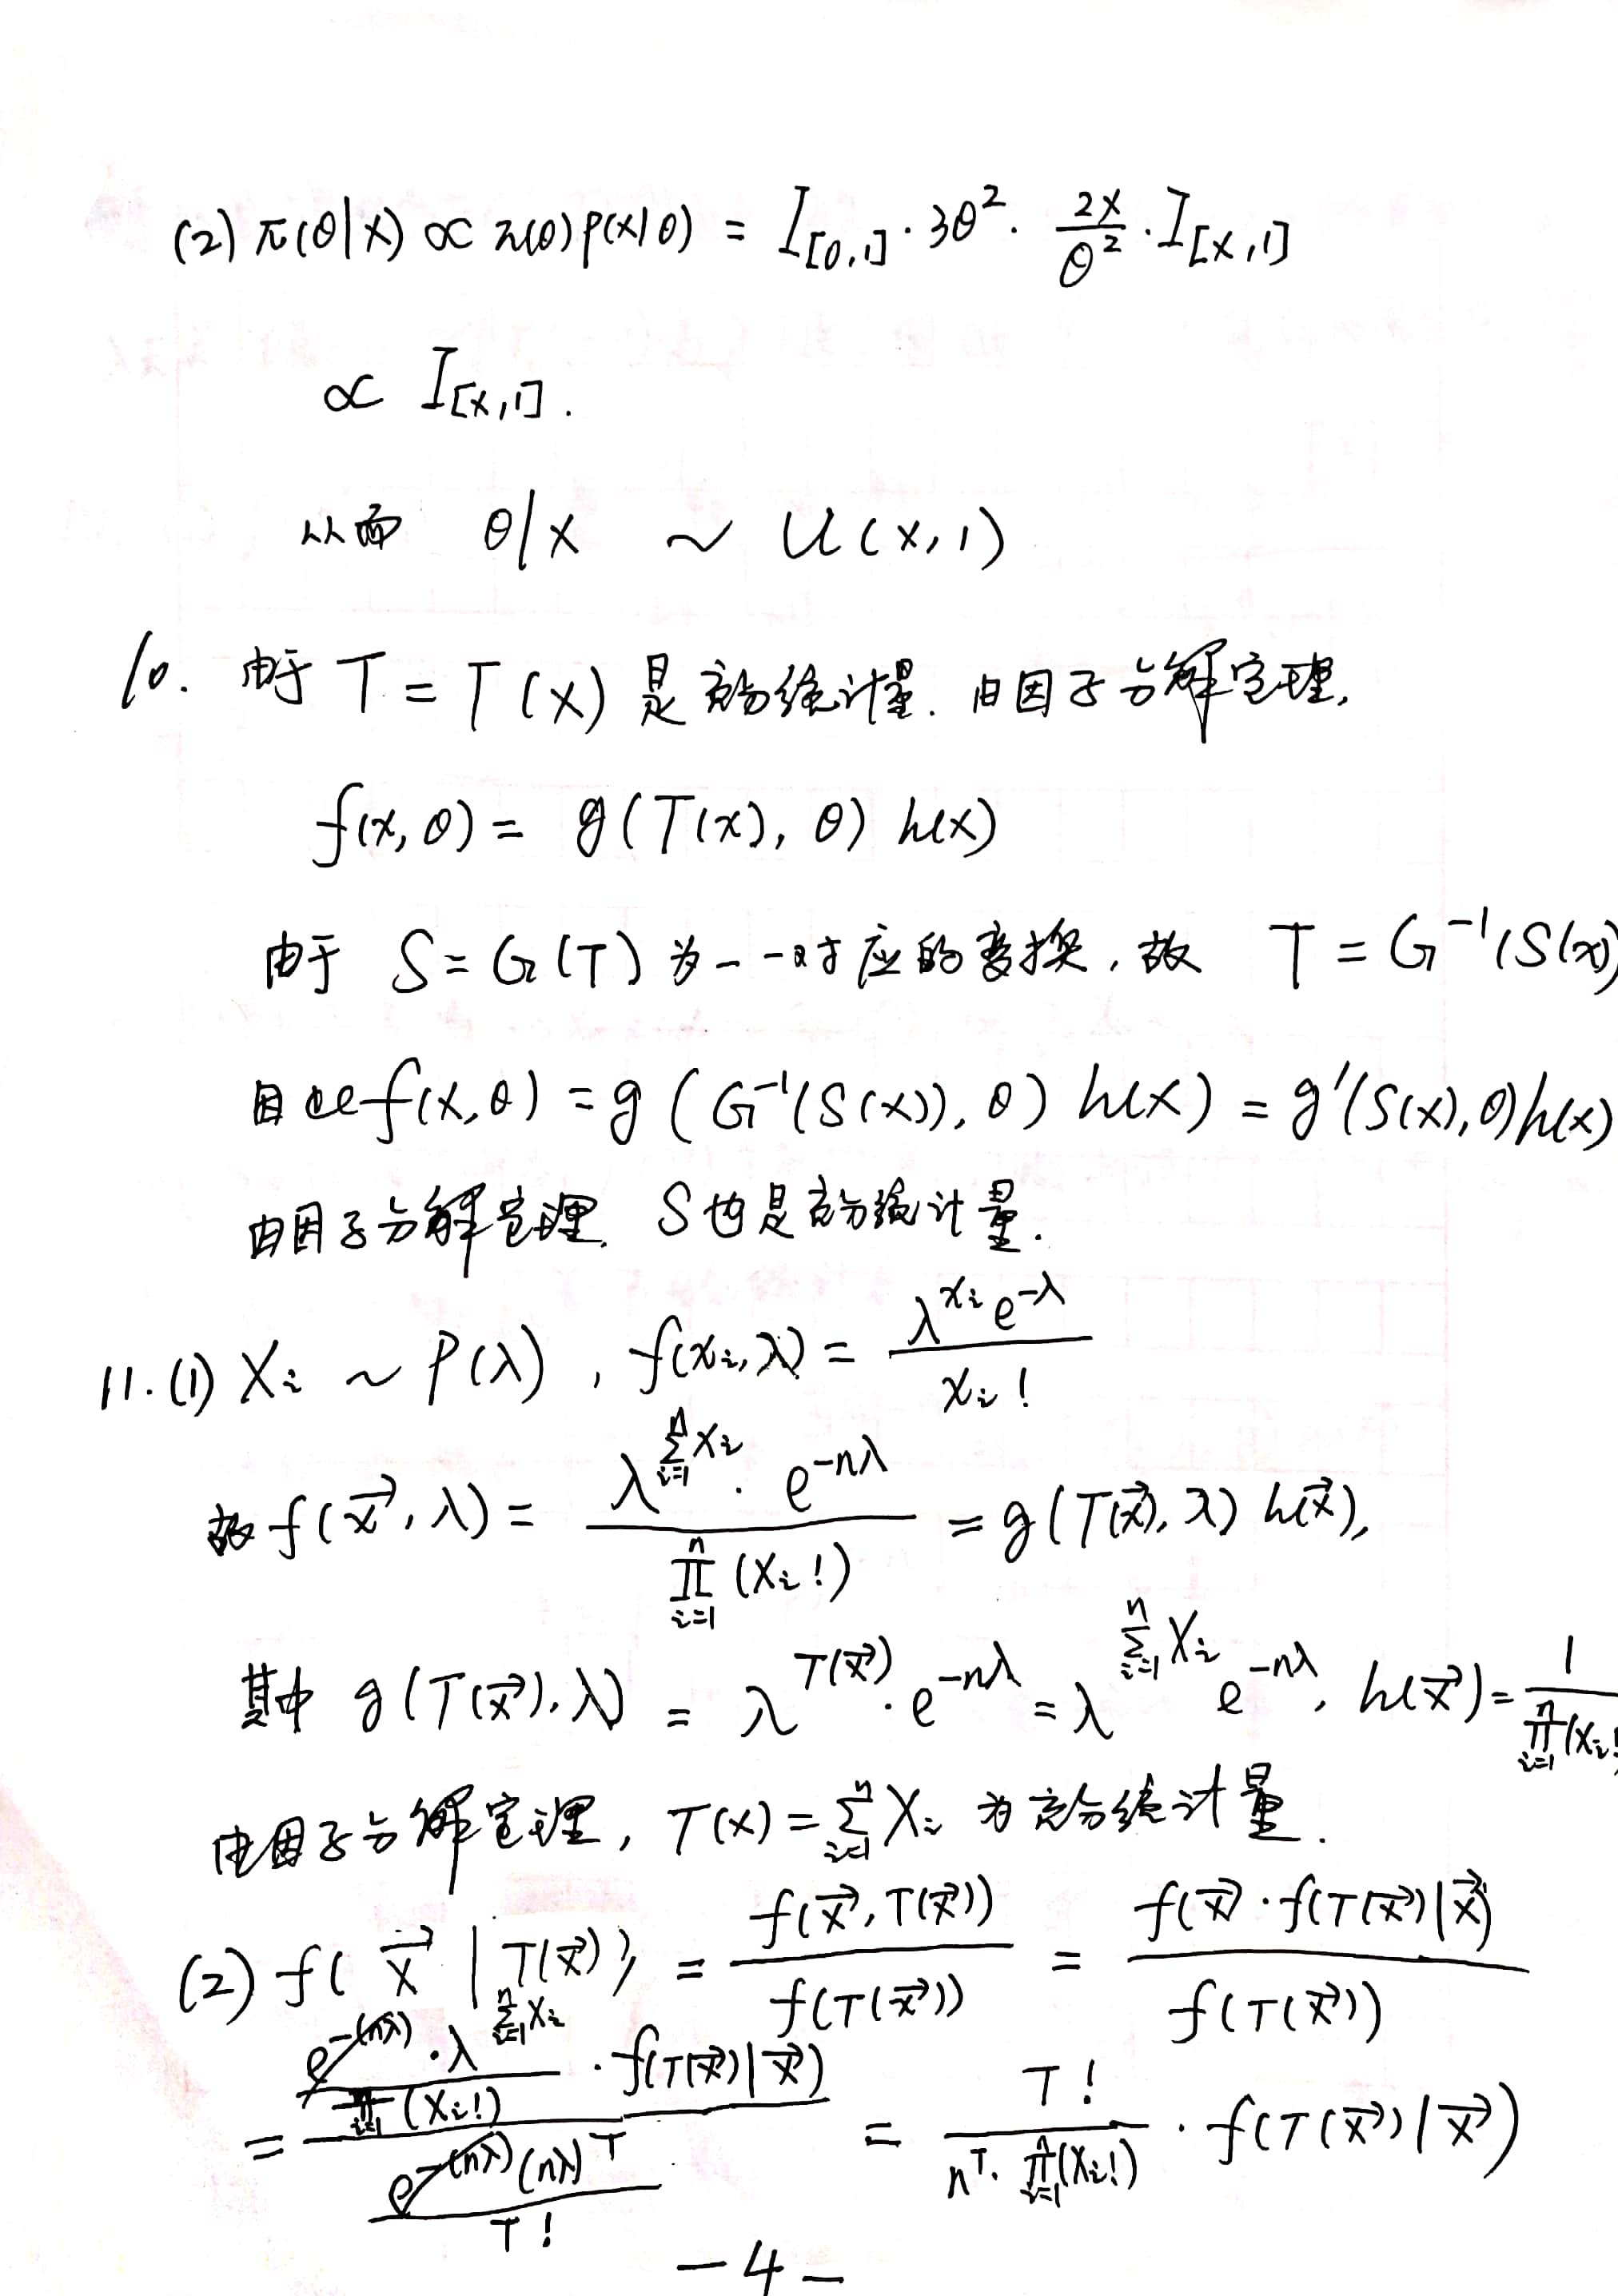 (2) π(θ|x) ∝ π(θ)p(x|θ) = I_{[0,1]} · 3θ² · \frac{2x}{θ²} · I_{[x,1]}
∝ I_{[x,1]}.
从而 θ|x ~ U(x,1)
10. 由于 T = T(x) 是充分统计量. 由因子分解定理,
f(x,θ) = g(T(x), θ) h(x)
由于 S = G(T) 为一一对应的变换, 故 T = G^{-1}(S(x))
因此 f(x,θ) = g(G^{-1}(S(x)), θ) h(x) = g'(S(x), θ) h(x)
由因子分解定理. S也是充分统计量.
11. (1) X_i ~ P(λ), f(x_i, λ) = \frac{λ^{x_i} e^{-λ}}{x_i!}
故 f(\vec{x}, λ) = \frac{λ^{\sum_{i=1}^{n} x_i} · e^{-nλ}}{\prod_{i=1}^{n} (x_i!)} = g(T(\vec{x}), λ) h(\vec{x}),
其中 g(T(\vec{x}), λ) = λ^{T(\vec{x})} · e^{-nλ} = λ^{\sum_{i=1}^{n} x_i} e^{-nλ}, h(\vec{x}) = \frac{1}{\prod_{i=1}^{n} (x_i!
由因子分解定理, T(x) = \sum_{i=1}^{n} X_i 为充分统计量.
(2) f(\vec{x} | T(\vec{x})) = \frac{f(\vec{x}, T(\vec{x}))}{f(T(\vec{x}))} = \frac{f(\vec{x}) · f(T(\vec{x}) | \vec{x})}{f(T(\vec{x}))}
= \frac{\frac{e^{-(nλ)} · λ^{\sum_{i=1}^{n} x_i}}{\prod_{i=1}^{n} (x_i!)} · f(T(\vec{x}) | \vec{x})}{\frac{e^{-(nλ)} (nλ)^T}{T!}} = \frac{T!}{n^T · \prod_{i=1}^{n} (x_i!)} · f(T(\vec{x}) | \vec{x})
-4-